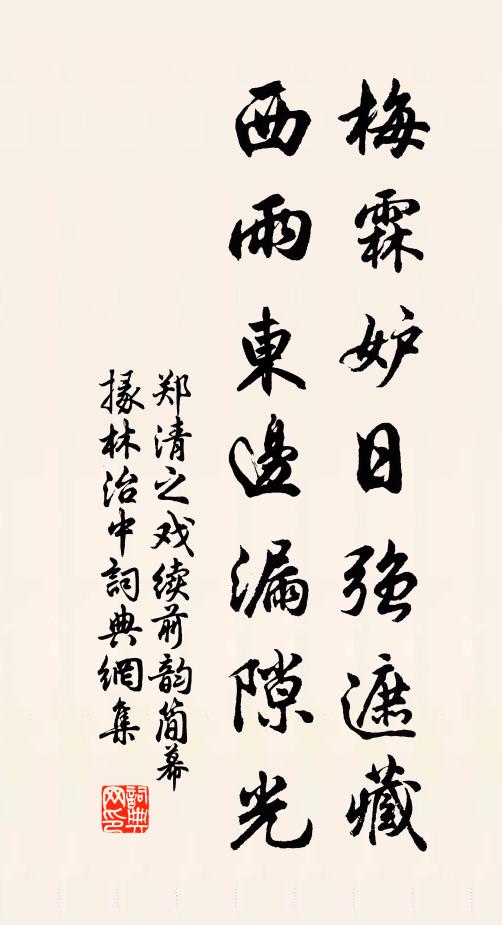 梅霖妒日强遮藏
西雨東邊漏隙光
郑清之戏续前韵简幕
掾林治中詞典網集
詞典
网印